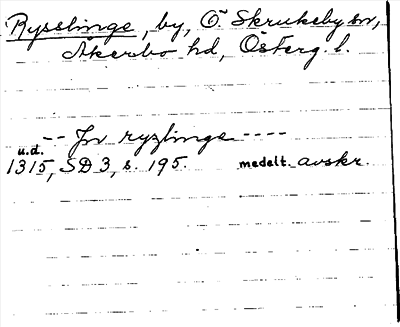 Rysslinge, by, Ö Skrukeby sn,
Åkerbo hd, Österg. l.
-- Jn ryzlinge ----
u.d.
1315, SD 3, s. 195. medelt. avskr.